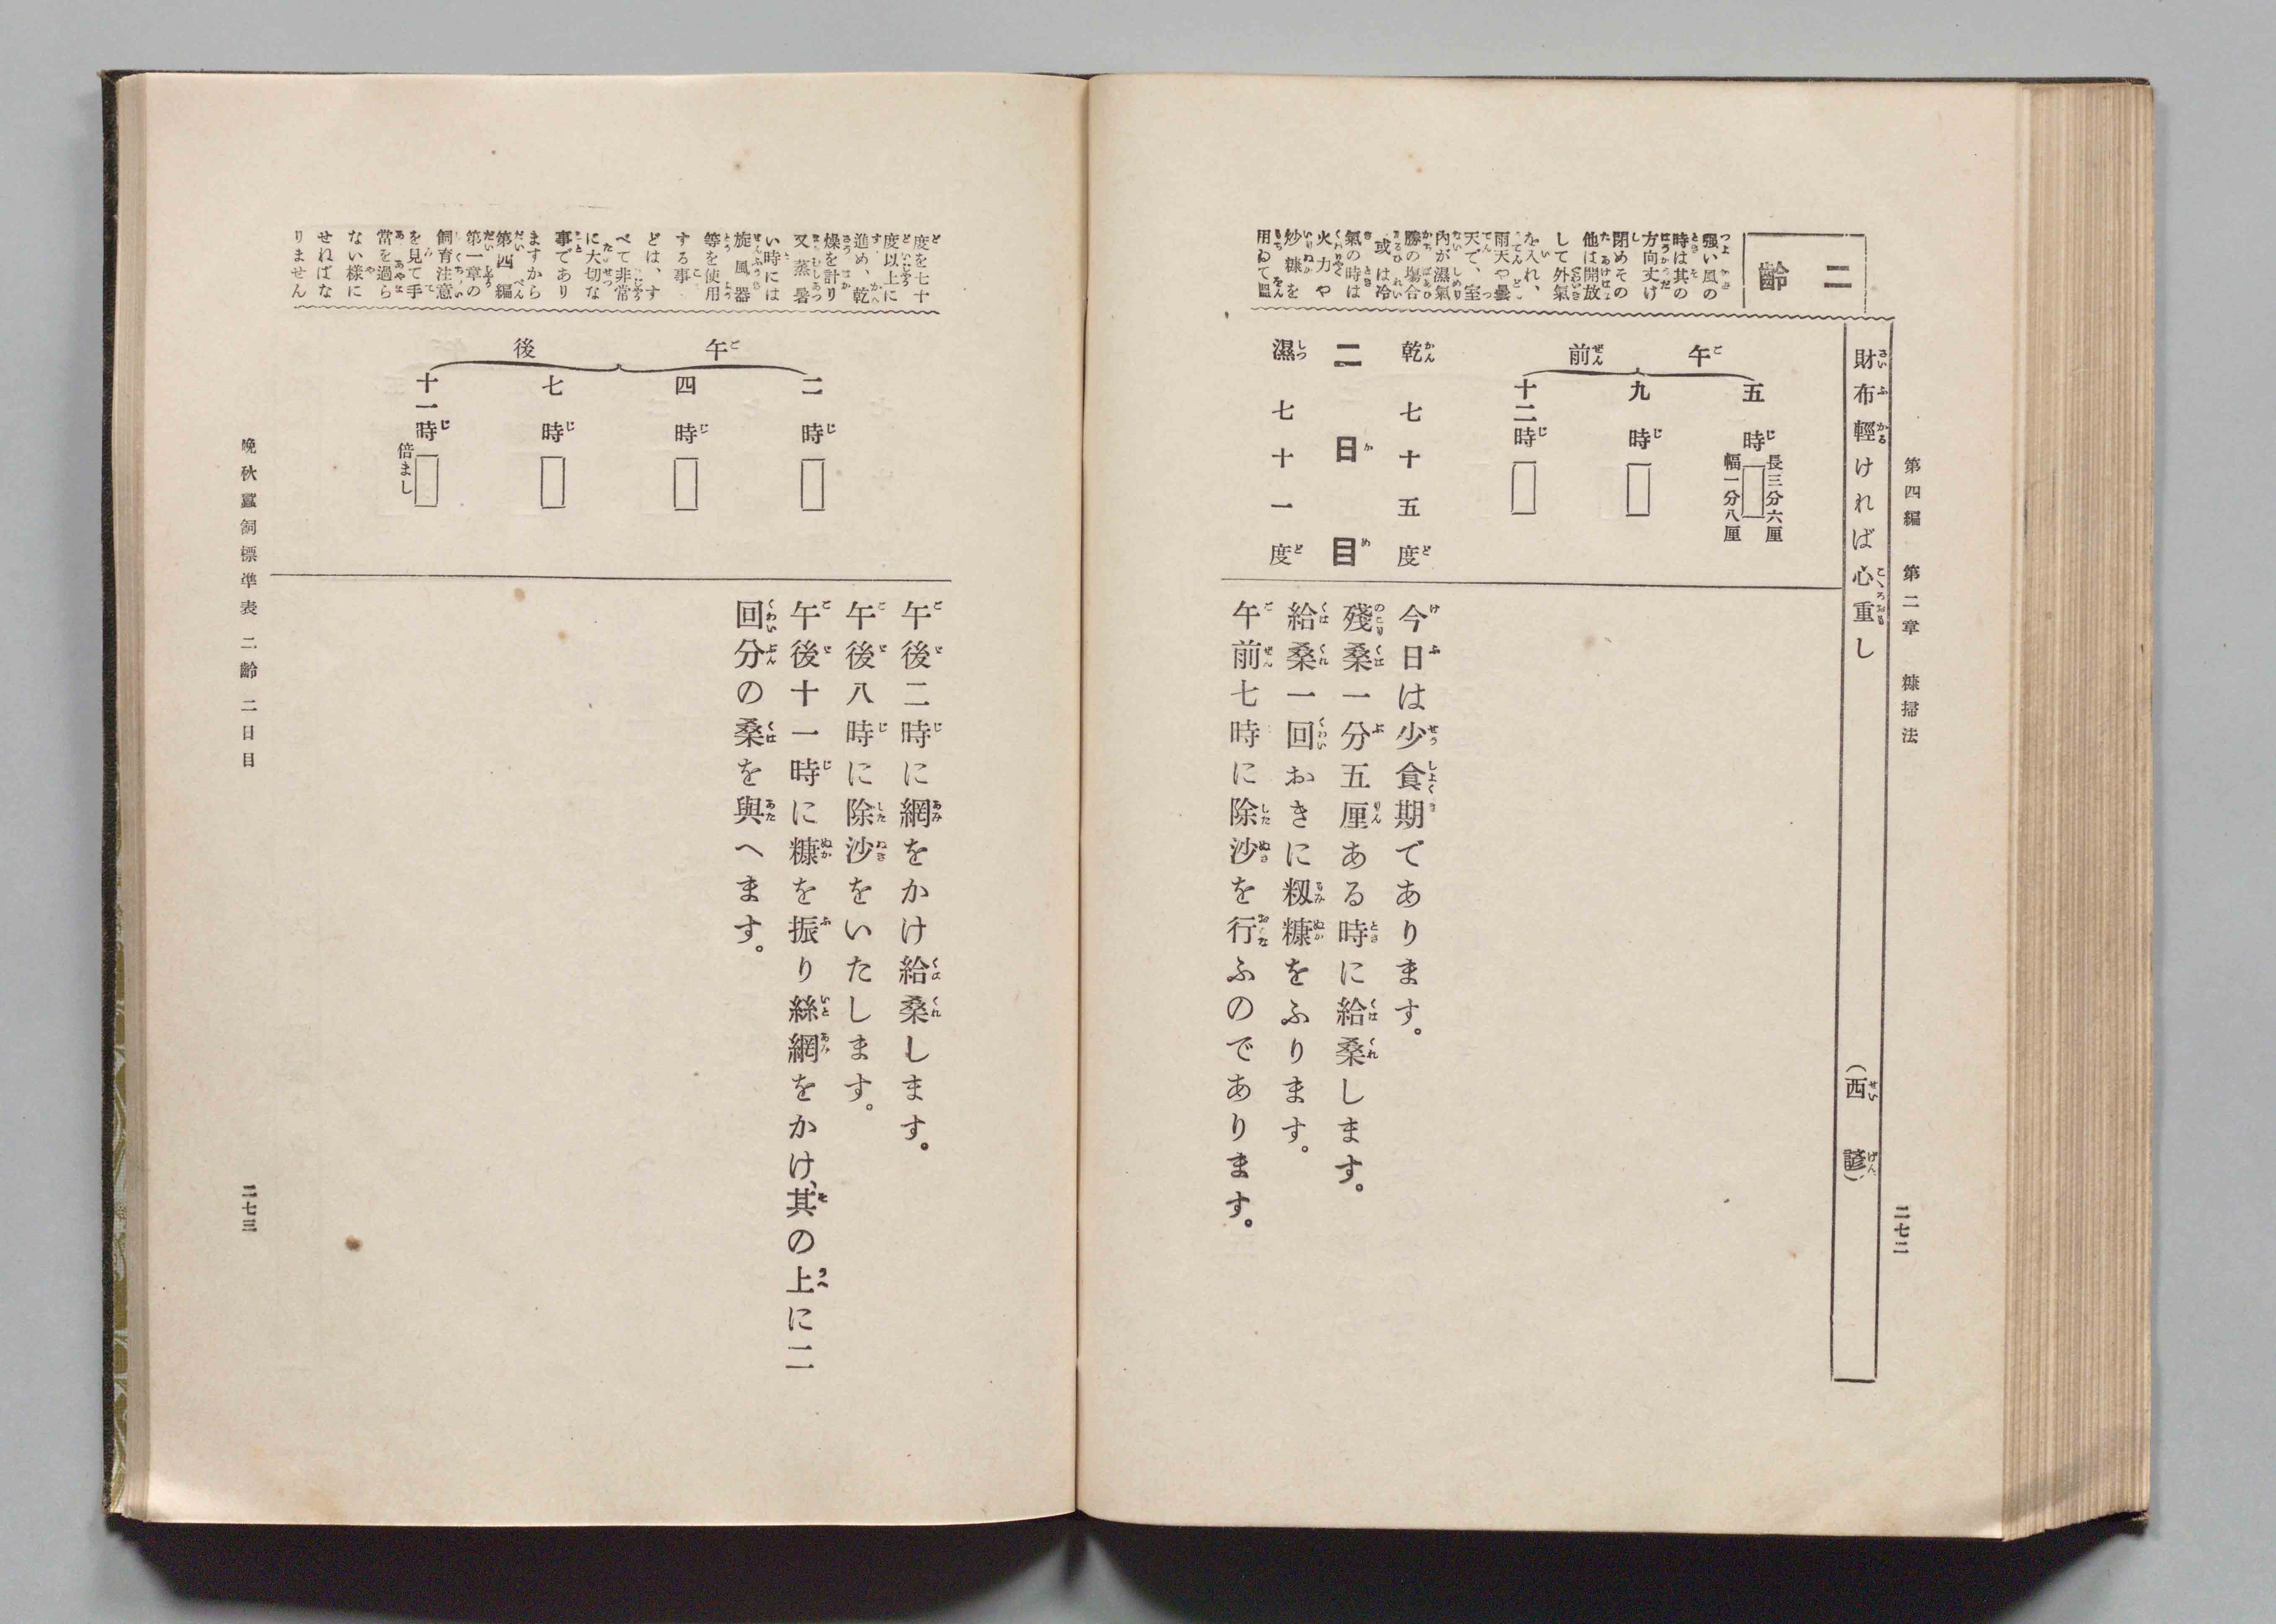 第四編　第二章　糠掃法
二七二
財布輕ければ心重し　（西諺）
二齡
强い風の
時は其の
方向丈け
閉めその
他は開放
して外氣
を入れ、
雨天や曇
天で、室
內が濕氣
勝の塲合
或は冷
氣の時は
火力や
炒糠を
用ゐて溫
午前
五時　長三分六厘　幅一分八厘
九時
十二時
乾　七十五度
二日目
濕　七十一度
今日は少食期であります。
殘桑一分五厘ある時に給桑します。
給桑一回おきに籾糠をふります。
午前七時に除沙を行ふのであります。
度を七十
度以上に
進め、乾
燥を計り
又蒸暑
い時には
旋風器
等を使用
する事
どは、す
べて非常
に大切な
事であり
ますから
第四編
第一章の
飼育注意
を見て手
當を過ら
ない樣に
せねばな
りません
午後
二時
四時
七時
十一時　倍まし
午後二時に網をかけ給桑します。
午後八時に除沙をいたします。
午後十一時に糠を振り絲網をかけ、其の上に二
回分の桑を與へます。
晚秋蠶飼標準表　二齡　二日目
二七三